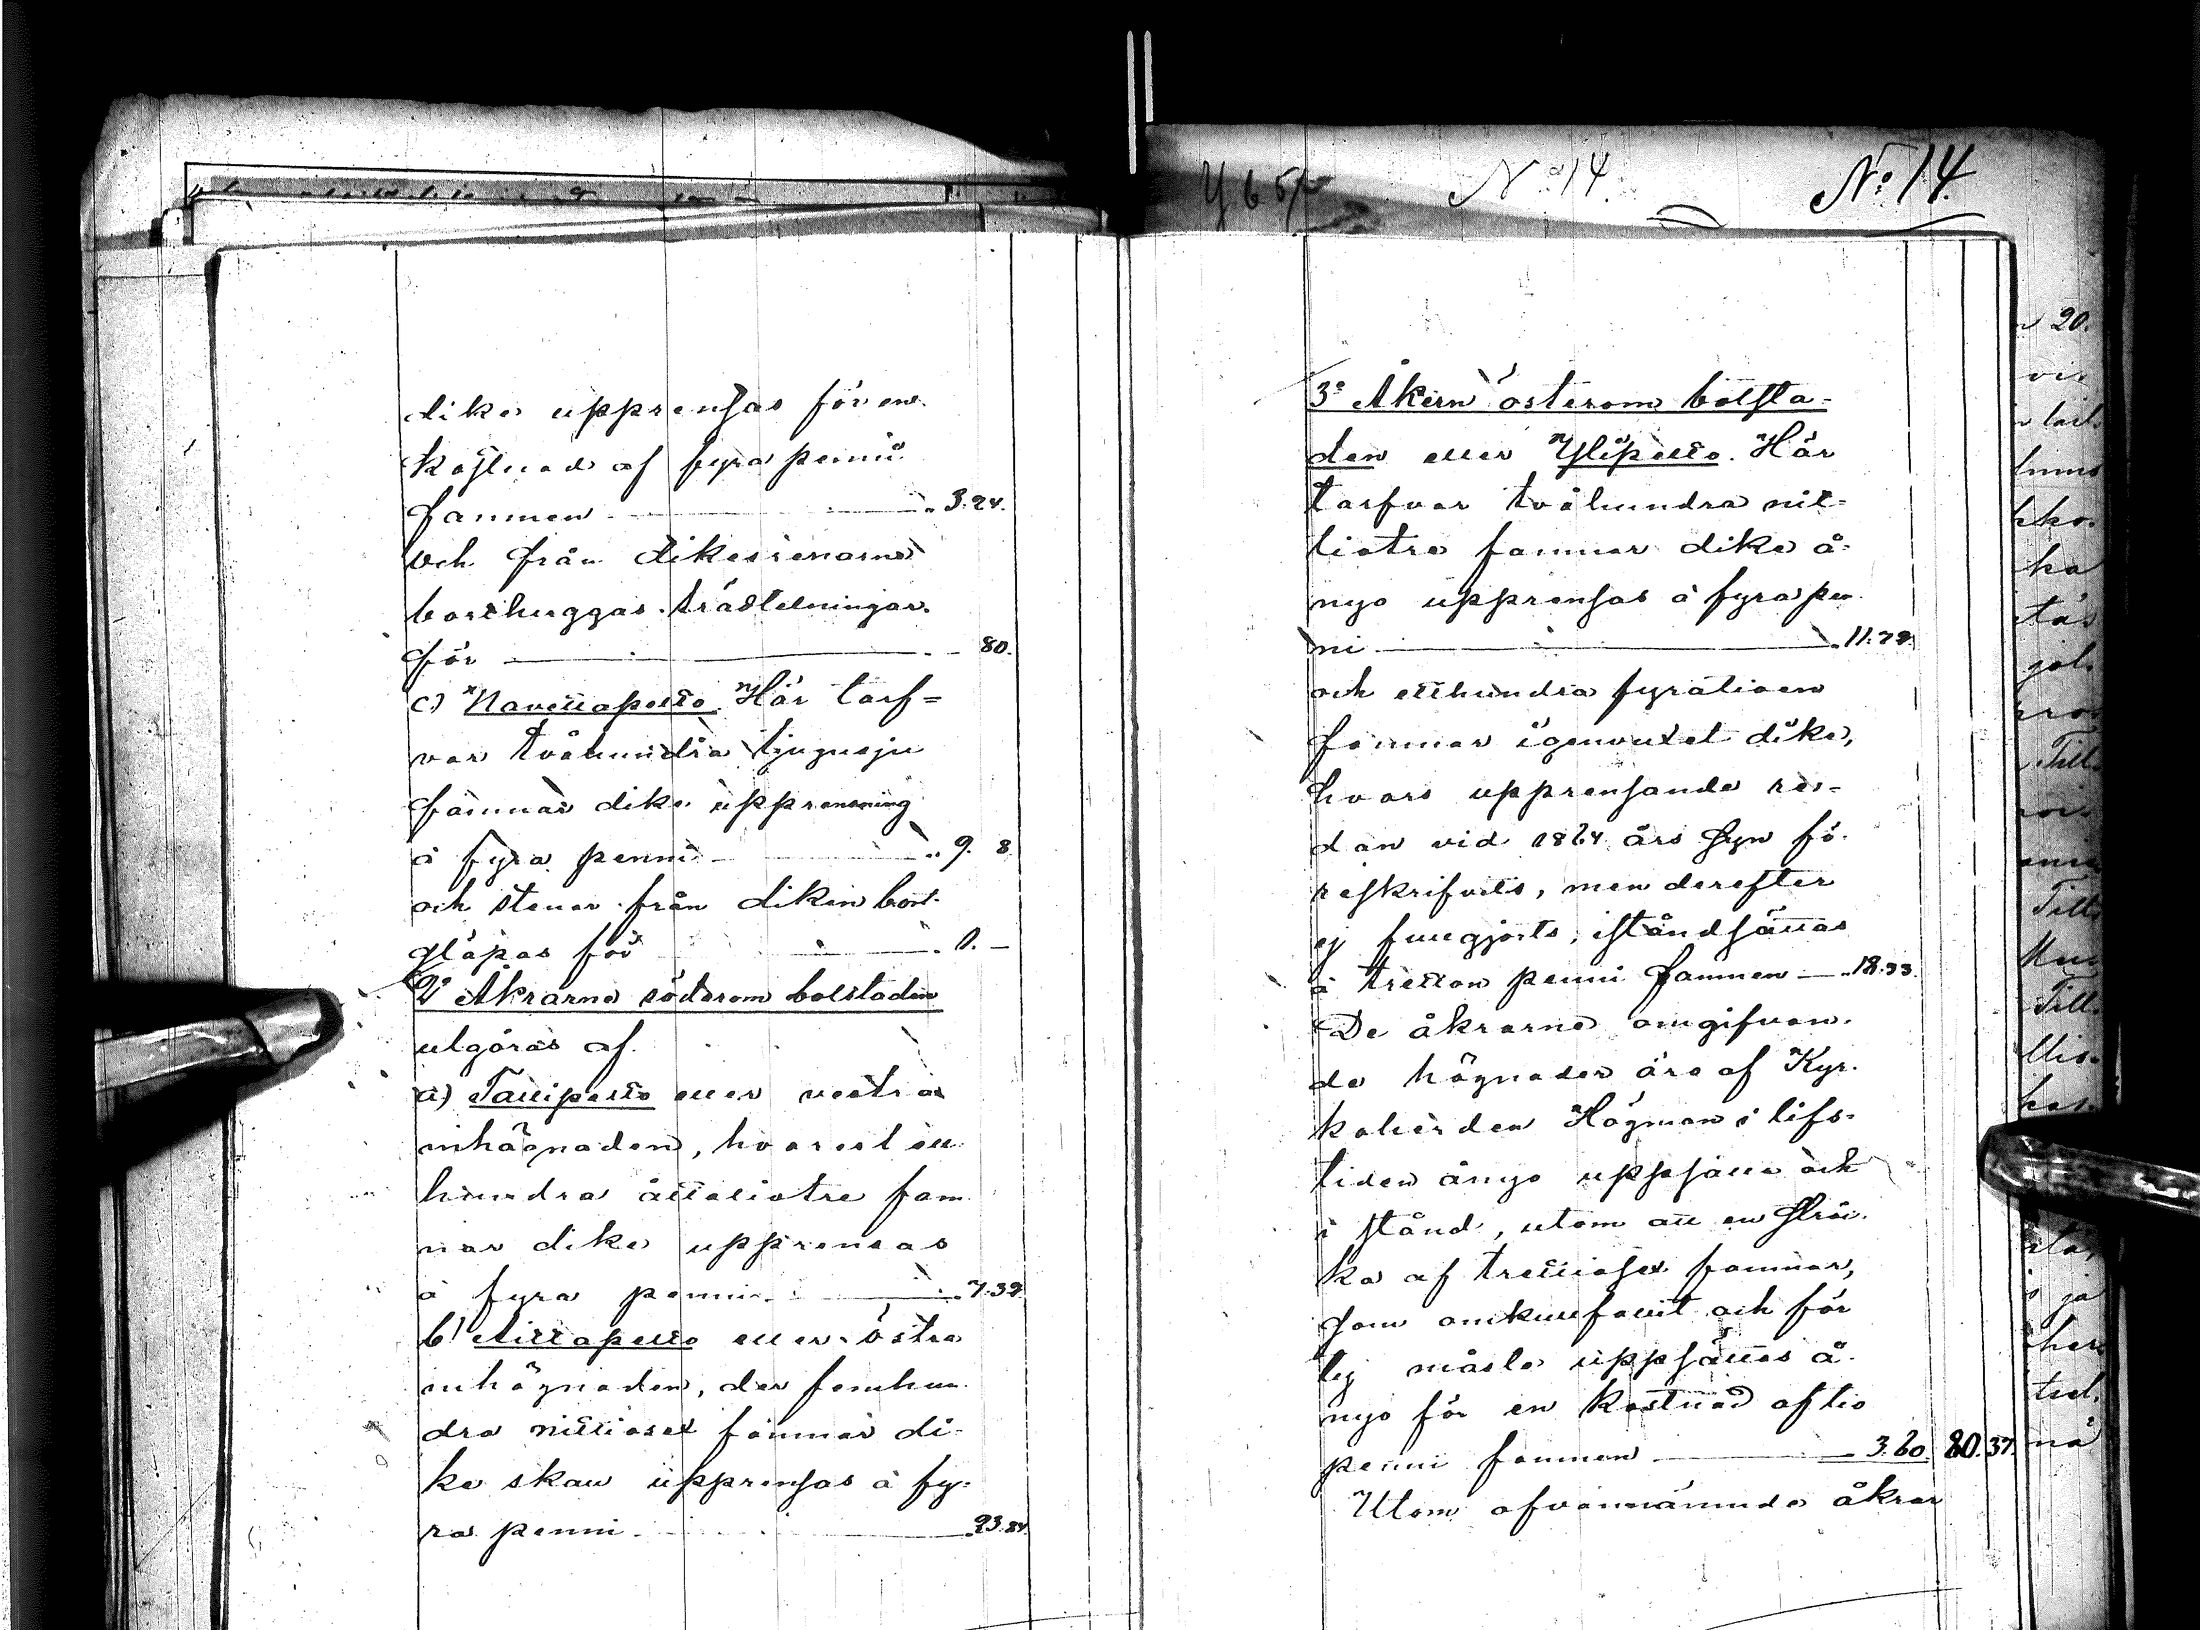 Nº 14.
Nº 14.
dike upprensas för en
kostnad af fyra penni
famnen „ 3. 24.
och från dikesrenarne
borthuggas trädtelningar
för „ 80.
c) Navettapelto. Här tarf=
var tvåhundra tjugusju
famnar dike upprensning
à fyra penni „ 9. 8
och stenar från diken bort-
släpas för „ 1. –
2º Åkrarne söderom bolstaden
utgöras af
a) Tallipelto eller vestra
inhägnaden, hvarest ett
hundra åttatiotre fam
nar dike upprensas
à fyra penni „ 7. 32
b) Aittapelto eller östra
inhägnaden, der femhun
dra nittiosex famnar di-
ke skall upprensas à fy-
ra penni „ 23. 84.
3º Åkern österom bolsta-
den eller Ylipelto. Här
tarfvar tvåhundra nit-
tiotre famnar dike å-
nyo upprensas à fyra pen
ni „ 11. 72.
och etthundra fyratioen
famnar igenvuxet dike,
hvars upprensande re-
dan vid 1864 års syn fö-
reskrifvits, men derefter
ej fullgjorts, iståndsättas
à tretton penni famnen „ 18. 33.
De åkrarne omgifvan-
de hägnader äro af Kyr-
koherden Högman i lifs-
tiden ånyo uppsatte och
i stånd, utom att en sträc-
ka af trettiosex famnar,
som omkullfallit och för
ty måste uppsättas å-
nyo för en kostnad af tio
penni famnen 3. 60. 80. 37.
Utom ofvannämnde åkrar